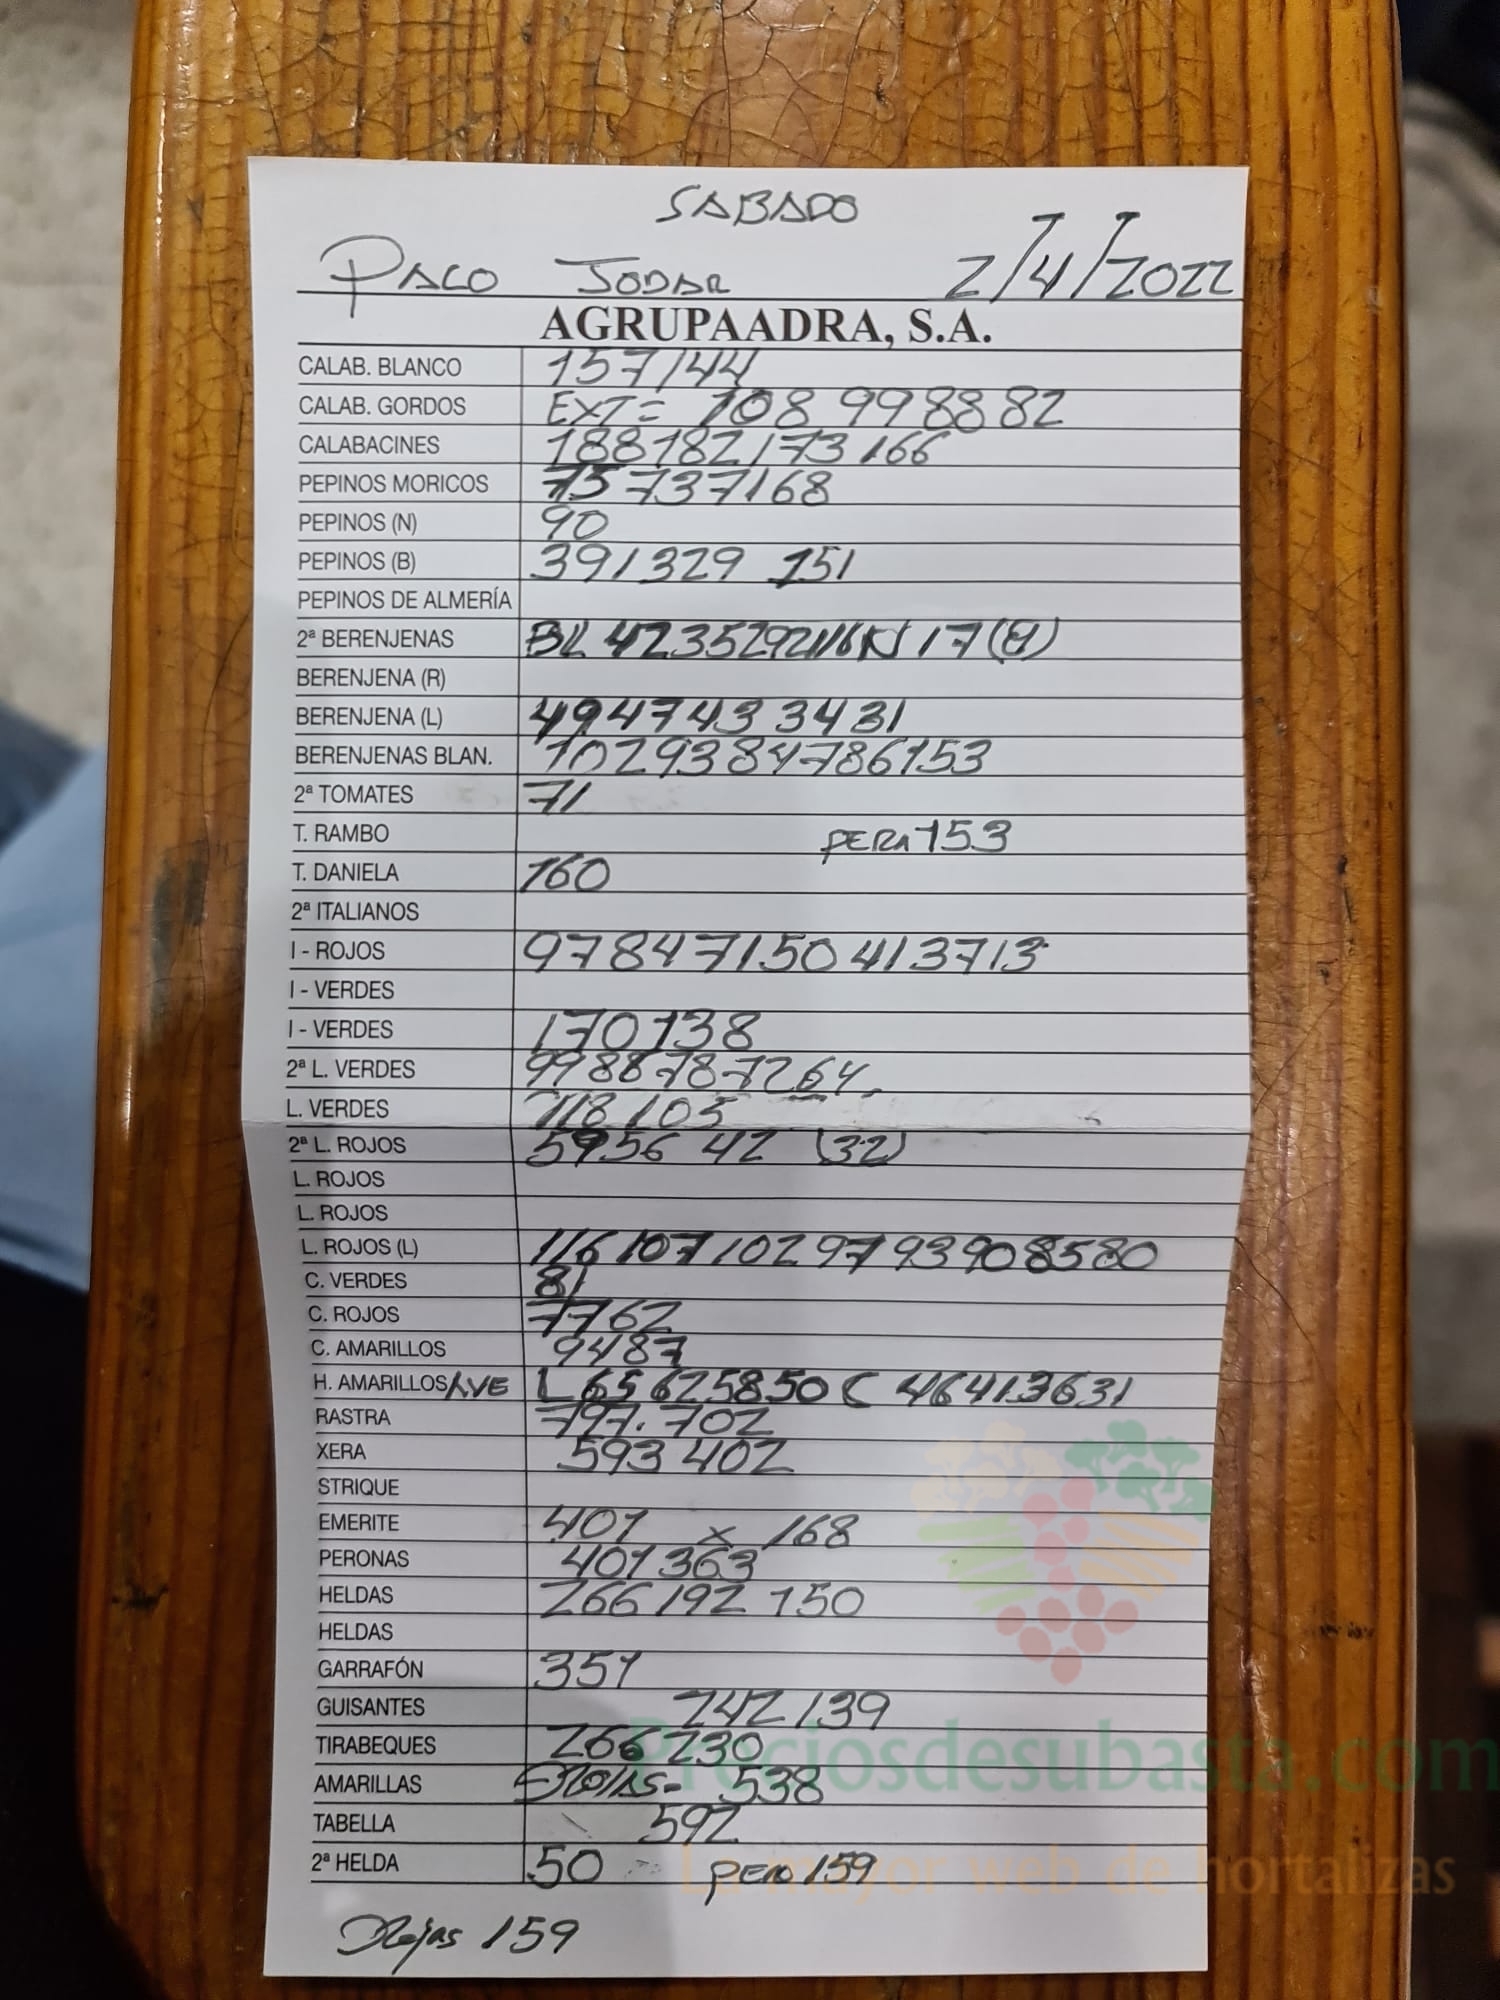 SABADO
PACO JODAR 2/4/2022
AGRUPAADRA, S.A.
CALAB. BLANCO 157144
CALAB. GORDOS EXT= 108 99 88 82
CALABACINES 188182173 166
PEPINOS MORICOS 75 73 7168
PEPINOS (N) 90
PEPINOS (B) 391329 151
PEPINOS DE ALMERÍA
2ª BERENJENAS BL 4235292116N 17(9)
BERENJENA (R)
BERENJENA (L) 494743 3431
BERENJENAS BLAN. 1029384786153
2ª TOMATES 71
T. RAMBO PERA 153
T. DANIELA 160
2ª ITALIANOS
I - ROJOS 97847150413713
I - VERDES
I - VERDES 170138
2ª L. VERDES 9988787264
L. VERDES 118 105
2ª L. ROJOS 5956 42 (32)
L. ROJOS
L. ROJOS
L. ROJOS (L) 116 107 102 97 93 90 8580
C. VERDES 81
C. ROJOS 7762
C. AMARILLOS 9487
H. AMARILLOS/AVE L 65625850 C 46413631
RASTRA 797.702
XERA 593 402
STRIQUE
EMERITE 401 x 168
PERONAS 401 363
HELDAS 266 192 150
HELDAS
GARRAFÓN 351
GUISANTES 242 139
TIRABEQUES 266 230
AMARILLAS 538
TABELLA 592
2ª HELDA 50 PERO 159
159
Preciosdesubasta.com
La mayor web de hortalizas